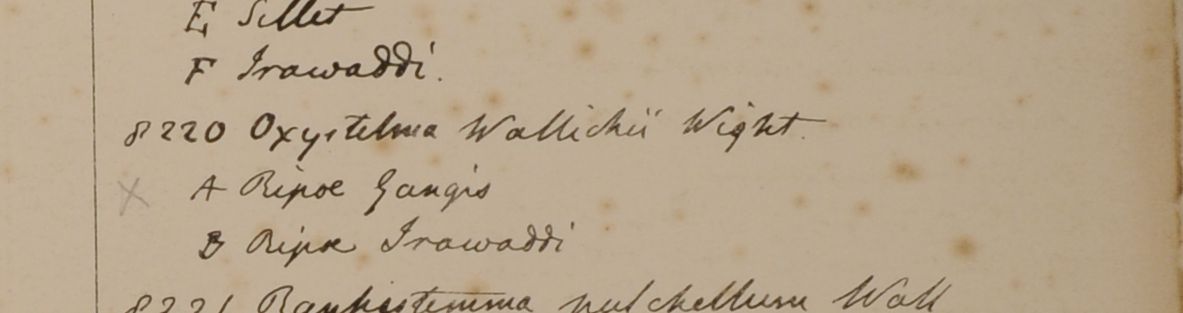 E Sillet
F Irawaddi.
8220 Oxystelma Wallichii Wight.
X A Ripoe Gangis
B Ripoe Irawaddi
8221 pulchellum Wall